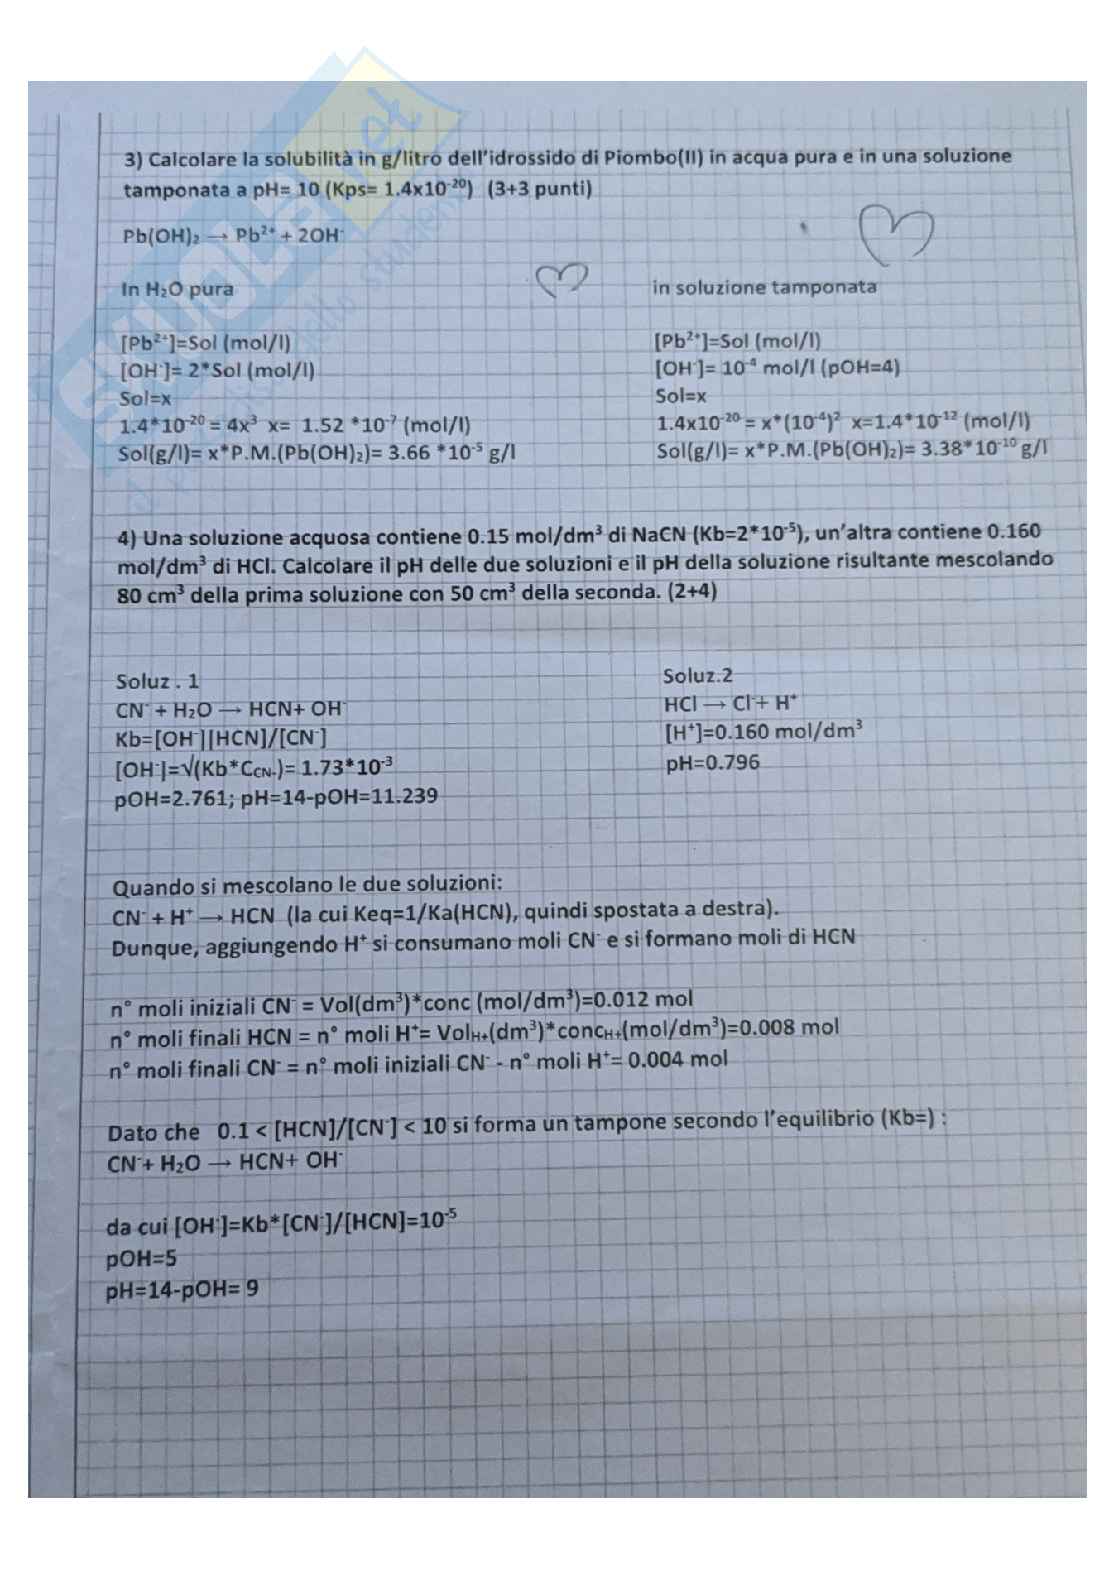 3) Calcolare la solubilità in g/litro dell'idrossido di Piombo(II) in acqua pura e in una soluzione
tamponata a pH= 10 (Kps= 1.4x10⁻²⁰) (3+3 punti)
Pb(OH)₂ → Pb²⁺ + 2OH⁻
In H₂O pura
[Pb²⁺]=Sol (mol/l)
[OH⁻]= 2*Sol (mol/l)
Sol=x
1.4*10⁻²⁰ = 4x³ x= 1.52 *10⁻⁷ (mol/l)
Sol(g/l)= x*P.M.(Pb(OH)₂)= 3.66 *10⁻⁵ g/l
in soluzione tamponata
[Pb²⁺]=Sol (mol/l)
[OH⁻]= 10⁻⁴ mol/l (pOH=4)
Sol=x
1.4x10⁻²⁰ = x*(10⁻⁴)² x=1.4*10⁻¹² (mol/l)
Sol(g/l)= x*P.M.(Pb(OH)₂)= 3.38*10⁻¹⁰ g/l
4) Una soluzione acquosa contiene 0.15 mol/dm³ di NaCN (Kb=2*10⁻⁵), un'altra contiene 0.160
mol/dm³ di HCl. Calcolare il pH delle due soluzioni e il pH della soluzione risultante mescolando
80 cm³ della prima soluzione con 50 cm³ della seconda. (2+4)
Soluz . 1
CN⁻ + H₂O → HCN+ OH⁻
Kb=[OH⁻][HCN]/[CN⁻]
[OH⁻]=√(Kb*C_CN-)= 1.73*10⁻³
pOH=2.761; pH=14-pOH=11.239
Soluz.2
HCl → Cl⁻+ H⁺
[H⁺]=0.160 mol/dm³
pH=0.796
Quando si mescolano le due soluzioni:
CN⁻ + H⁺ → HCN (la cui Keq=1/Ka(HCN), quindi spostata a destra).
Dunque, aggiungendo H⁺ si consumano moli CN⁻ e si formano moli di HCN
n° moli iniziali CN⁻ = Vol(dm³)*conc (mol/dm³)=0.012 mol
n° moli finali HCN = n° moli H⁺= Vol_H+(dm³)*conc_H+(mol/dm³)=0.008 mol
n° moli finali CN⁻ = n° moli iniziali CN⁻ - n° moli H⁺= 0.004 mol
Dato che 0.1 < [HCN]/[CN⁻] < 10 si forma un tampone secondo l'equilibrio (Kb=) :
CN⁻+ H₂O → HCN+ OH⁻
da cui [OH⁻]=Kb*[CN⁻]/[HCN]=10⁻⁵
pOH=5
pH=14-pOH= 9